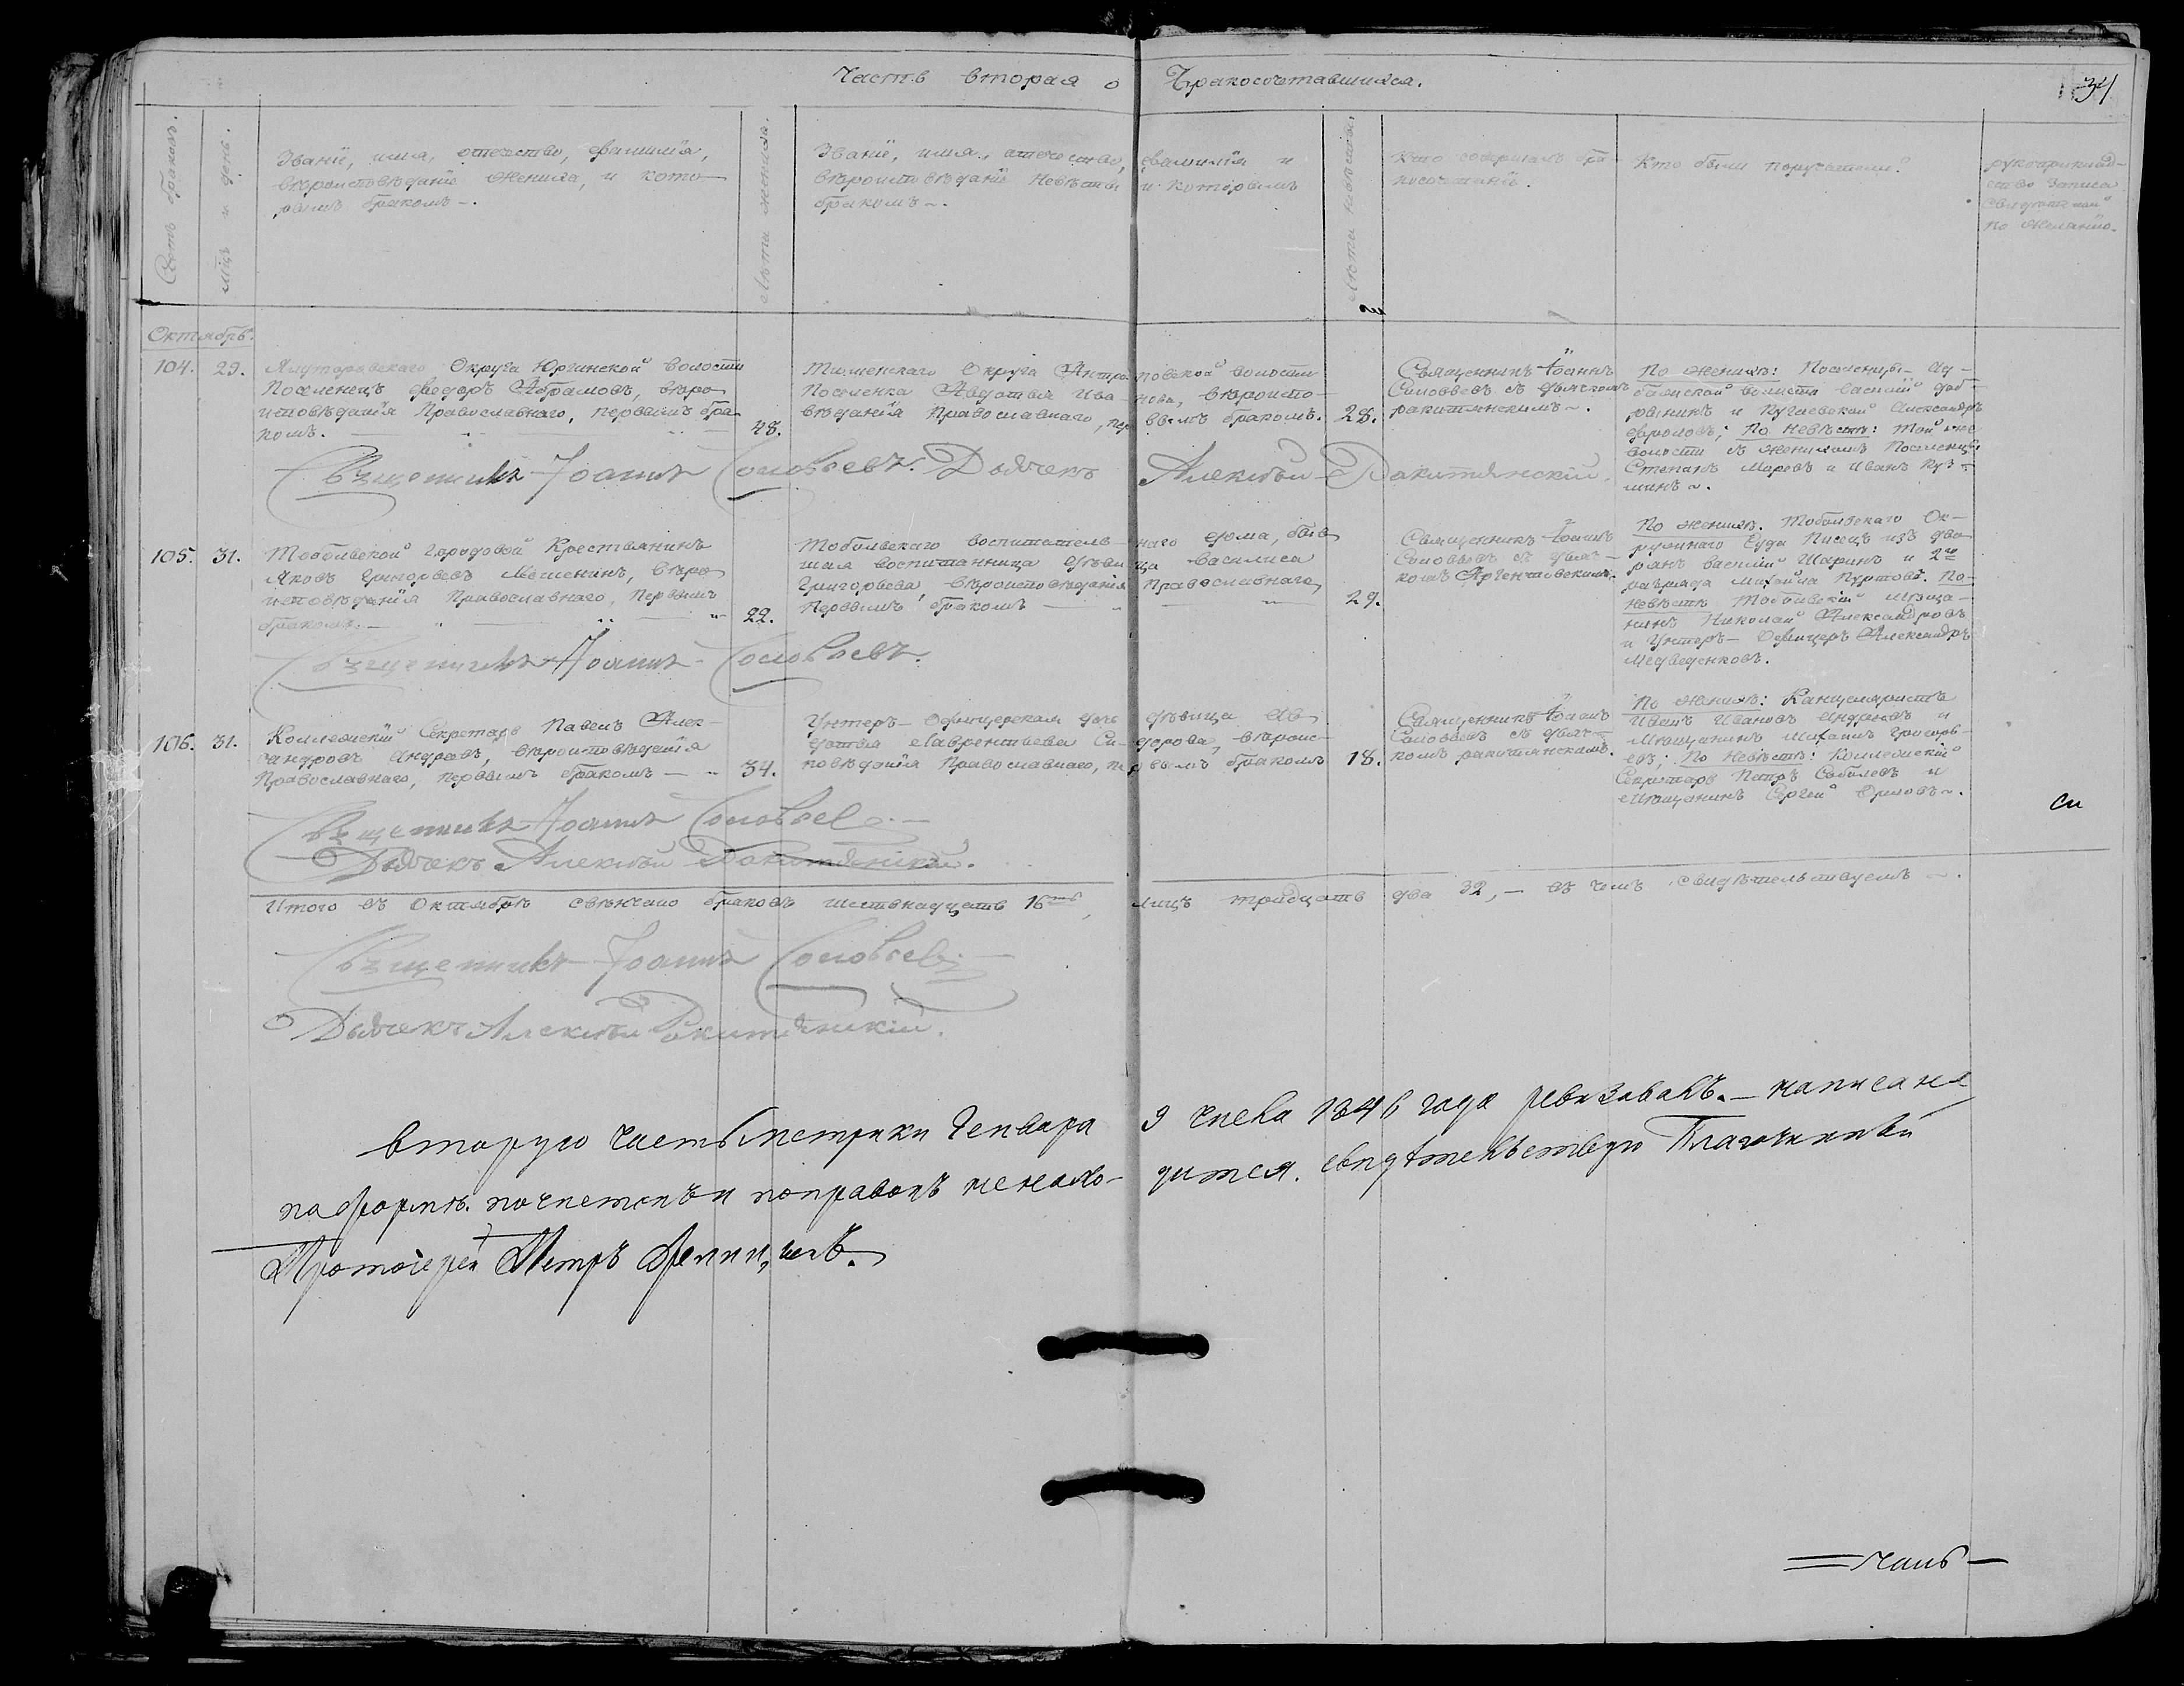 Часть вторая о Бракосочетавшихся.
34
Счетъ браковъ.
М͠цъ и день.
Званіе, имя, отечество, фамилія,
вѣроисповѣданіе жениха, и кото-
рымъ бракомъ.
Лѣта жениха.
Званіе, имя, отечество, фамилія и
вѣроисповѣданіе невѣсты и которымъ
бракомъ.
Лѣта невѣсты.
Кто совершалъ бра-
косочетаніе.
Кто были поручатели.
рукоприклад-
ство записа
свидетелей
по желанію.
Октябрь.
104. 29.
Ялуторовскаго Округа Юргинской волости
Поселенецъ Федоръ Абрамовъ, вѣро
исповѣданія Православнаго, первымъ бра
комъ.
48.
Тюменскаго Округа Антроповской волости
Поселенка Авдотья Иванова, вѣроиспо-
вѣданія Православнаго, первымъ бракомъ.
28.
Священникъ Іоаннъ
Соловьевъ съ дьячкомъ
ракитянскимъ.
По женихѣ: Поселенцы
волости Василий
и Александръ
Фроловъ; По Невѣстѣ: Той же
волости съ женихомъ Поселенцы
Степанъ Маровъ и Иванъ Куз-
минъ.
Священникъ Іоаннъ Соловьевъ. Дьячекъ Алексѣй Ракитянскій.
105. 31.
Тобольской городовой Крестьянинъ
Яковъ Григорьевъ вѣро
исповѣданія Православнаго, Первымъ
бракомъ.
22.
Тобольскаго воспитательнаго дома, быв
шая воспитанница дѣвица Василиса
Григорьева, вѣроисповѣданія Православнаго,
Первымъ бракомъ
29.
Священникъ Іоаннъ
Соловьевъ съ дьяч-
комъ Аргентовскимъ.
По женихѣ. Тобольскаго Ок-
ружнаго Суда Писецъ изъ дво-
рянъ Василий Шаринъ и 2го
разряда Михайла Куртовъ. По-
Невѣстѣ Тобольскій мѣща-
нинъ Николай Александровъ
и Унтеръ-Офицеръ Александръ
Медведенковъ.
Священникъ Іоаннъ Соловьевъ.
106. 31.
Коллежскій Секретарь Павелъ Алек-
сандровъ Андроновъ, вѣроисповѣданія
Православнаго, первымъ бракомъ
34.
Унтеръ-Офицерская дочь дѣвица Ав
дотья Лаврентьева Сидорова, вѣроис-
повѣданія Православнаго, первымъ бракомъ
18.
Священникъ Іоаннъ
Соловьевъ съ дьяч-
комъ ракитянскимъ.
По женихѣ: Канцеляристъ
Иванъ Ивановъ и
Мѣщанинъ Михаилъ Григорь-
евъ; По Невѣстѣ: Коллежскій
Секретарь Петръ Соболевъ и
Мѣщанинъ Сергей Орловъ.
Священникъ Іоаннъ Соловьевъ
Дьячекъ Алексѣй Ракитянскій.
си
Итого въ Октябрѣ свѣнчано браковъ шестьнадцать 16ть, лицъ тридцать два 32, — въ чемъ свидѣтельствуемъ.
Священникъ Іоаннъ Соловьевъ
Дьячекъ Алексѣй Ракитянскій.
вторую часть метрики Генваря 9 числа 1846 года ревизовалъ. — написана
по формѣ. почистокъ и поправокъ ненахо-дится. свидѣтельствую Благочинный
Протоіерей Петръ